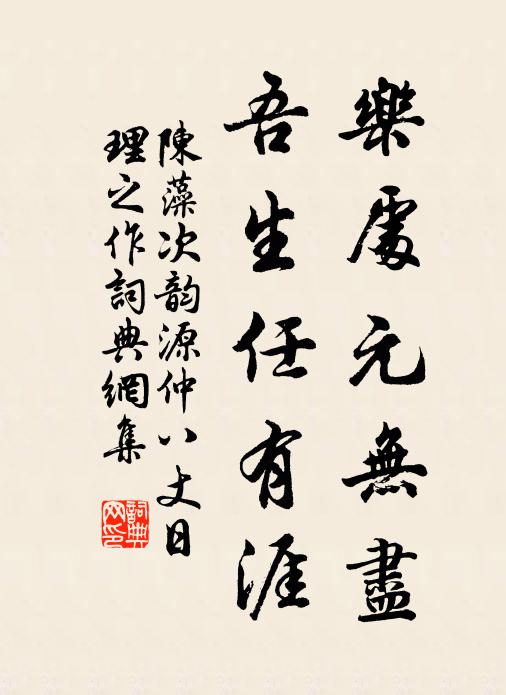 樂處元無盡
吾生任有涯
陳藻次韵源仲八丈日
理之作詞典網集
詞典網印